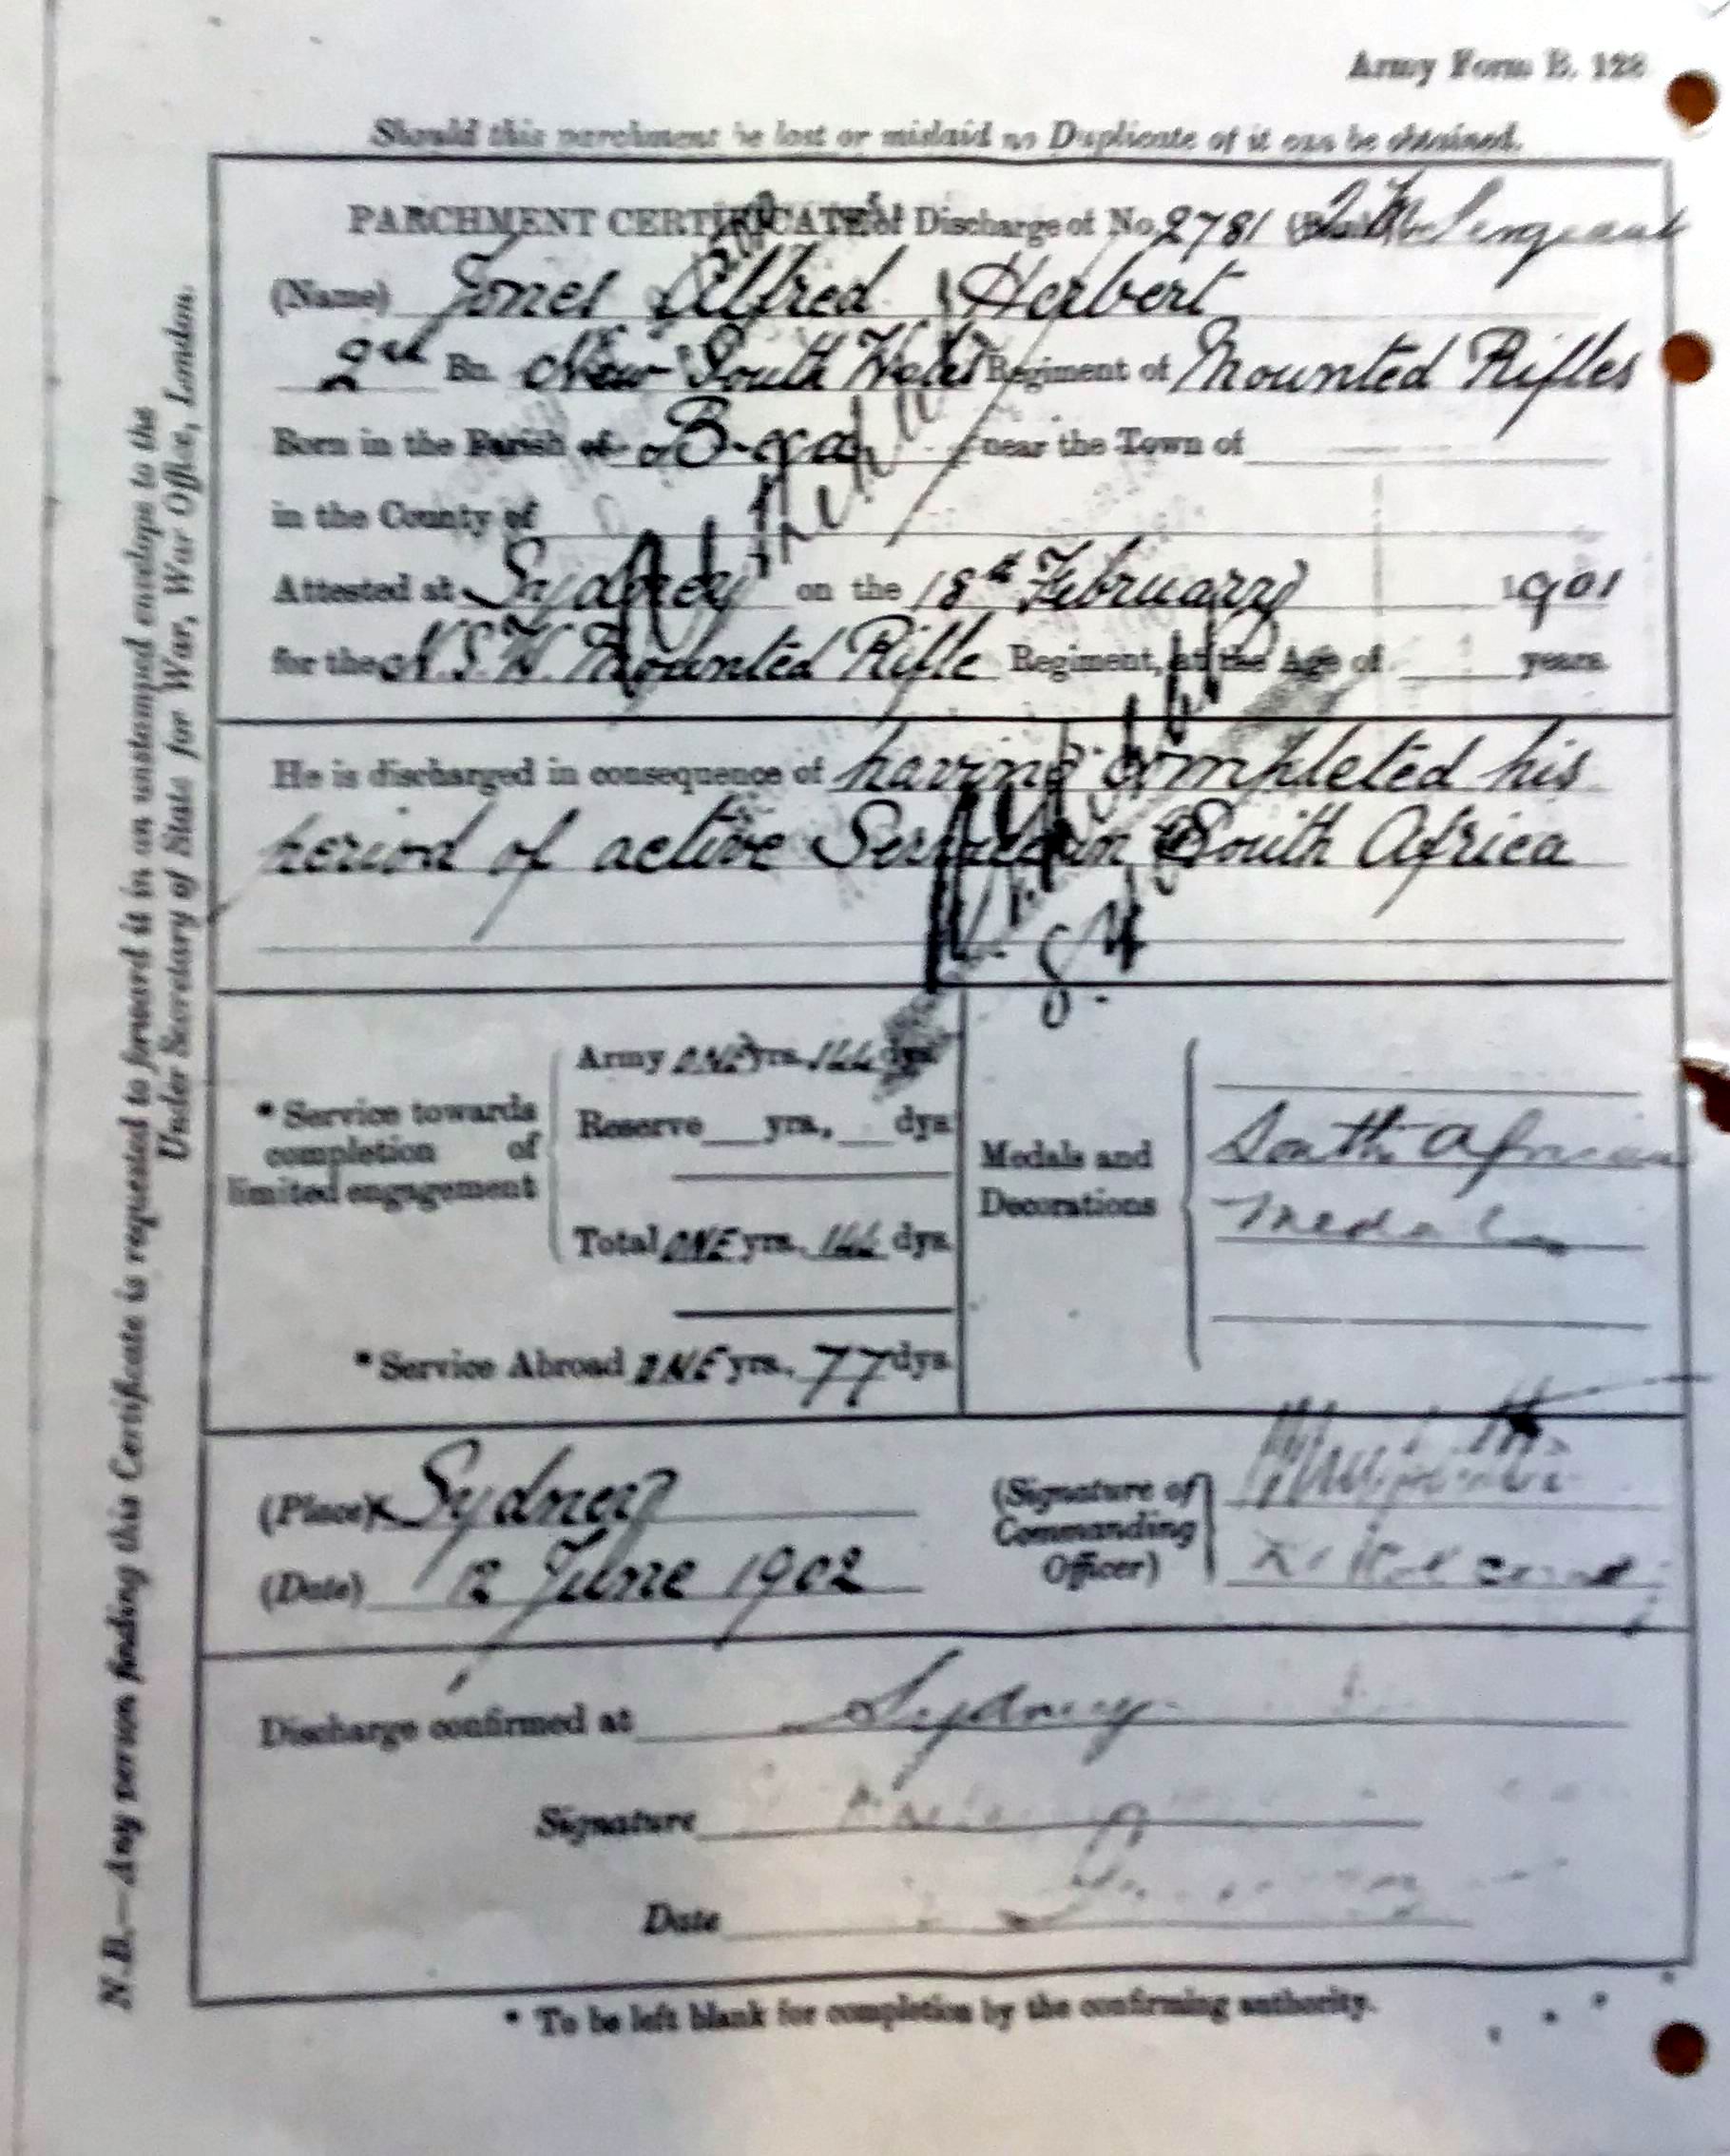 Army Form B. 128
Should this parchment be lost or mislaid no Duplicate of it can be obtained.
PARCHMENT CERTIFICATE of Discharge of No. 2781 Sergeant
(Name) Jones Alfred Herbert
2nd Bn. New South Wales Regiment of Mounted Rifles
Born in the Parish of Bega near the Town of
in the County of
Attested at Sydney on the 18th February 1901
for the N.S.W. Mounted Rifle Regiment, at the Age of years.
He is discharged in consequence of having completed his
period of active Service in South Africa
* Service towards completion of limited engagement
Army ONE yrs. 144 dys.
Reserve yrs., dys.
Total ONE yrs. 144 dys.
* Service Abroad ONE yrs., 77 dys.
Medals and Decorations
South African
Medal
(Place) Sydney
(Date) 12 June 1902
(Signature of Commanding Officer)
Discharge confirmed at Sydney
Signature
Date
* To be left blank for completion by the confirming authority.
N.B.—Any person finding this Certificate is requested to forward it in an unstamped envelope to the
Under Secretary of State for War, War Office, London.